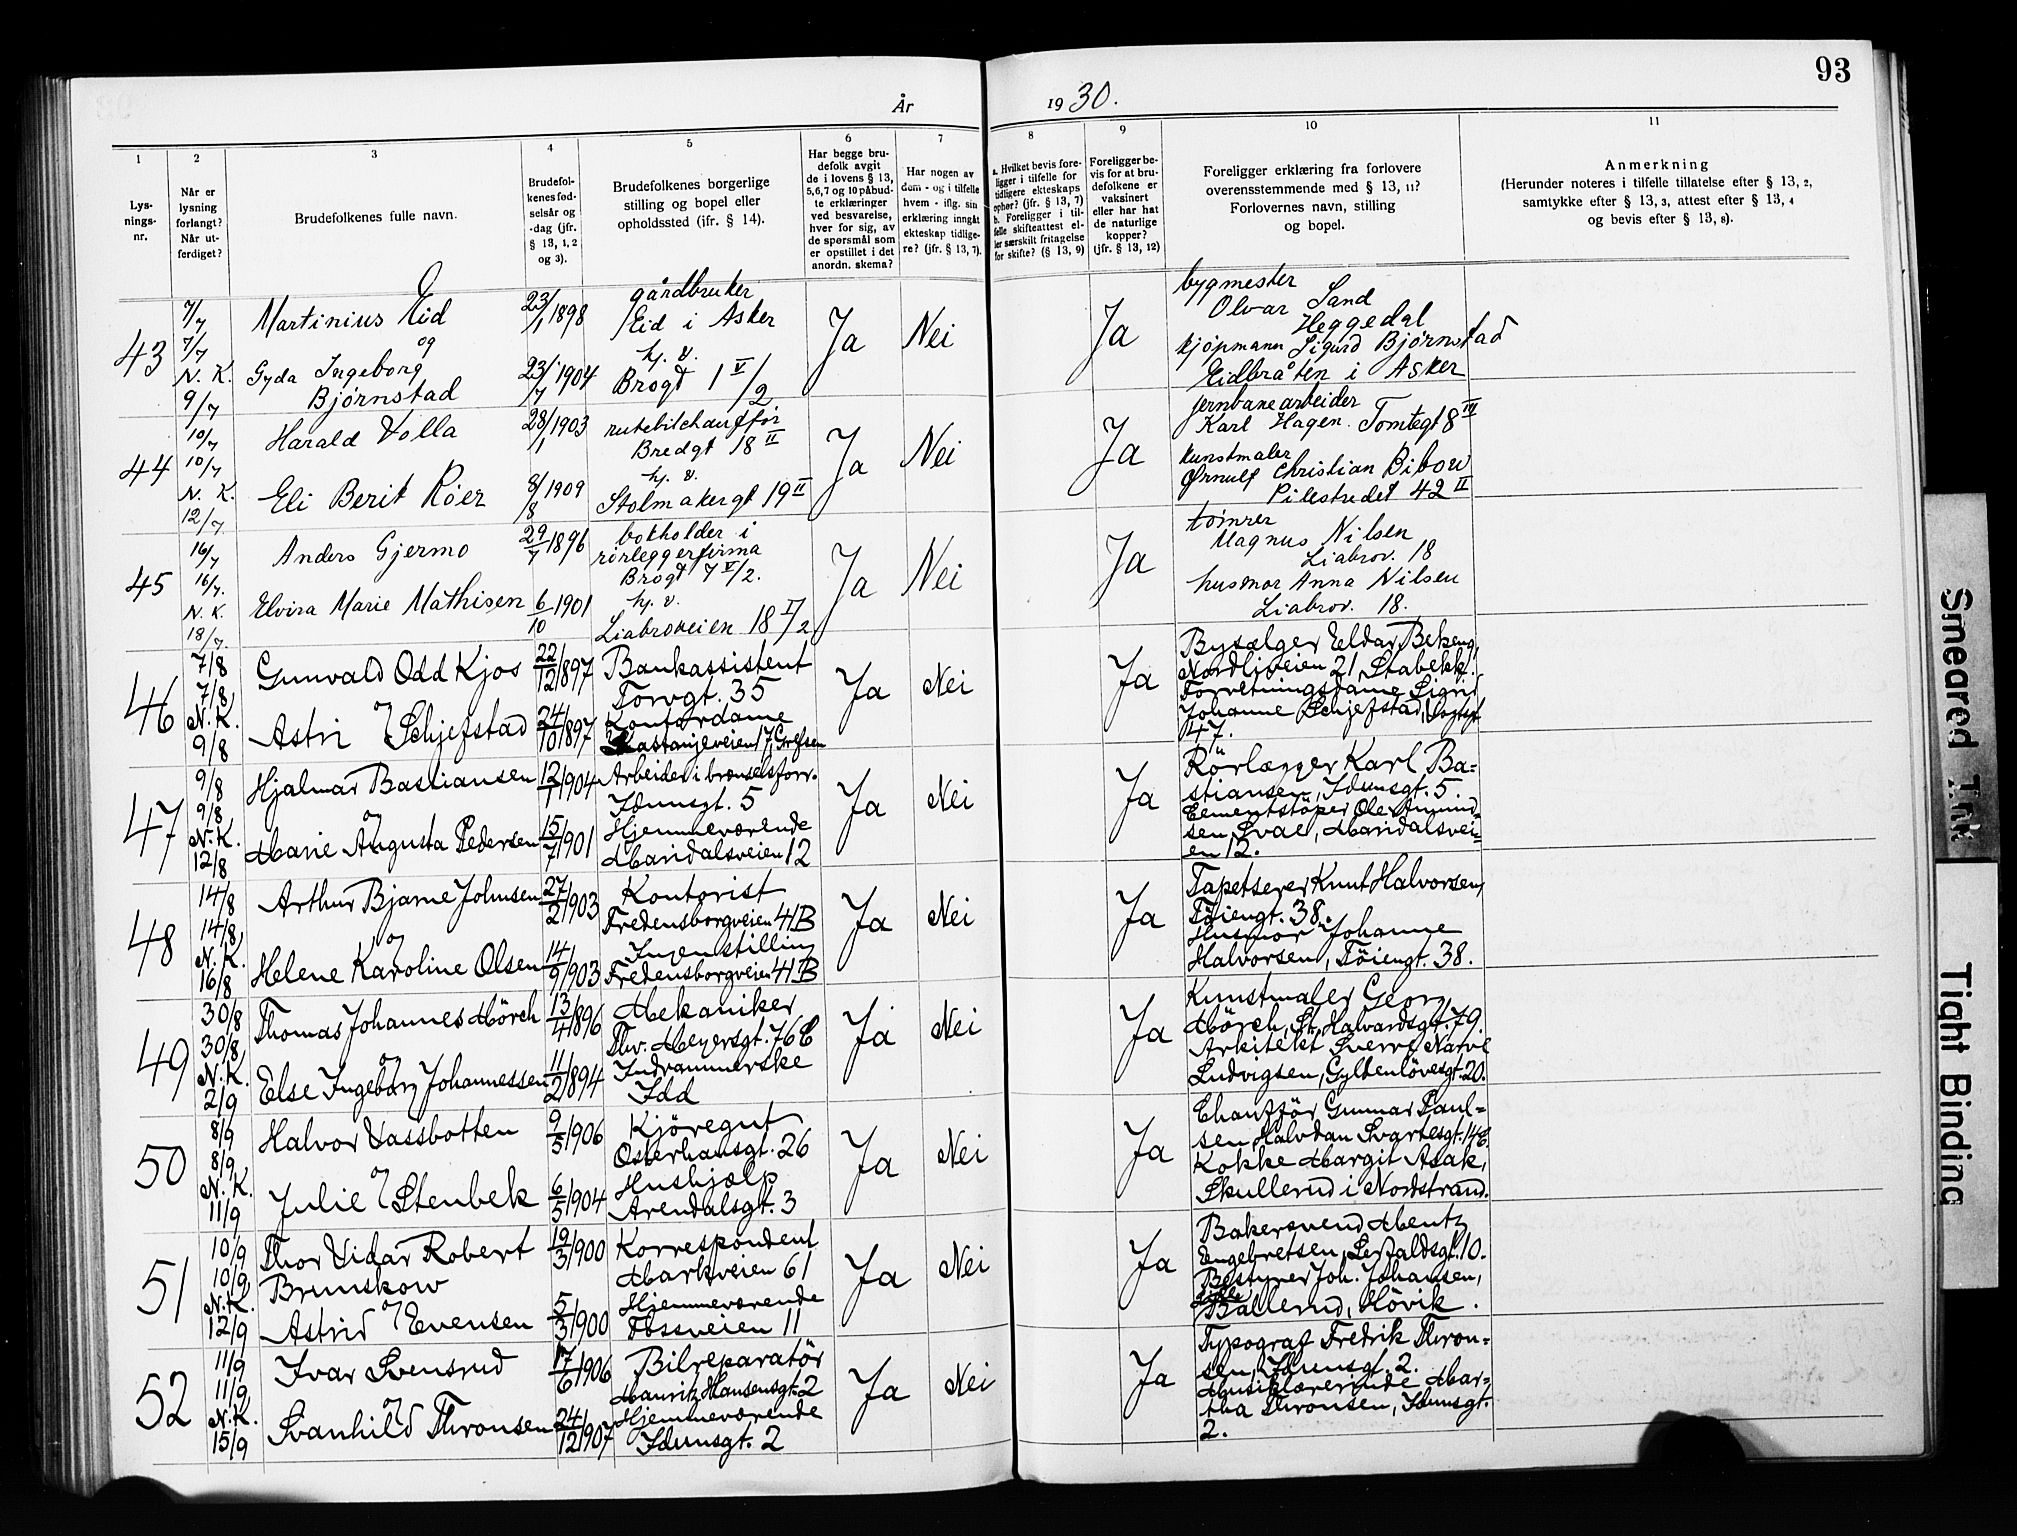 93
År 1930.
1 2 3 4 5 6 7 8 9 10 11
Lys-
nings-
nr.
Når er
lysning
forlangt?
Når ut-
ferdiget?
Brudefolkenes fulle navn.
Brudefol-
kenes fød-
selsår og
-dag (jfr.
§ 13, 1, 2
og 3).
Brudefolkenes borgerlige
stilling og bopel eller
opholdssted (ifr. § 14).
Har begge bru-
defolk avgit
de i lovens § 13,
5,6,7 og 10 påbud-
te erklæringer
ved besvarelse,
hver for sig, av
de spørsmål som
er opstillet i det
anordn. skema?
Har nogen av
dem - og i tilfelle
hvem - iflg. sin
erklæring inngåt
ekteskap tidlige-
re? (jfr. § 13, 7).
a. Hvilket bevis fore-
ligger i tilfelle for
tidligere ekteskaps
ophør? (jfr. § 13, 7)
b. Foreligger i til-
felle skifteattest el-
ler særskilt fritagelse
for skifte? (§ 13, 9)
Foreligger be-
vis for at bru-
defolkene er
vaksinert
eller har hat
de naturlige
kopper?
(jfr. § 13, 12)
Foreligger erklæring fra forlovere
overensstemmende med § 13, 11?
Forlovernes navn, stilling
og bopel.
Anmerkning
(Herunder noteres i tilfelle tillatelse efter § 13, 2,
samtykke efter § 13, 3, attest efter § 13, 4
og bevis efter § 13, 8).
43
7/7
7/7
N. K.
9/7
Martinius Eid
og
Gyda Ingeborg
Bjørnstad
23/1 1898
23/7 1904
gårdbruker
Eid i Asker
hj. v.
Brogt 1 V/2
Ja
Nei
Ja
bygmester
Olvar Sand
Heggedal
kjøpmann Sigurd Bjørnstad
Eidbråten i Asker
44
10/7
10/7
N. K.
12/7
Harald Volla
Eli Berit Röer
28/1 1903
8/8 1909
rutebilchauffør
Bredgt 18 II
hj. v.
Stolmakergt 19 II
Ja
Nei
Ja
jernbanearbeider
Karl Hagen. Tomtegt 8 III
kunstmaler
Ørnulf Christian Bibow
Pilestredet 42 II
45
16/7
16/7.
N. K.
18/7.
Anders Gjermo
Elvira Marie Mathisen
29/7 1896
6/10 1901
bokholder i
rörleggerfirma
Brogt 7 V/2.
hj. v.
Liabroveien 18 I/2
Ja
Nei
Ja
tömrer
Magnus Nilsen
Liabrov. 18
husmor Anna Nilsen
Liabrov. 18.
46
7/8
7/8
N.K.
9/8
Gunvald Odd Kjos
og
Astri Schjefstad
22/12 1897
24/10 1897
Bankassistent
Torvgt. 35
Kontordame
Kastanjeveien 17, Grefsen
Ja
Nei
Ja
Bysælger Eldar Bekeng,
Nordliveien 21, Stabekk.
Forretningsdame Sigrid
Johanne Schjefstad,
147.
47
9/8
9/8
N.K.
12/8
Hjalmar Bastiansen
og
Marie Augusta Pedersen
12/1 1904
15/7 1901
Arbeider i brenselsforr.
Idunsgt. 5
Hjemmeværende
Maridalsveien 12
Ja
Nei
Ja
Rörlægger Karl Ba=
stiansen, Idunsgt. 5.
Cementstöper Ole Amund=
sen Svae, Maridalsvei=
en 12.
48
14/8
14/8
N.K.
16/8
Arthur Bjarne Johnsen
og
Helene Karoline Olsen
27/2 1903
14/9 1903
Kontorist
Fredensborgveien 41B
Ingen stilling
Fredensborgveien 41B
Ja
Nei
Ja
Tapetserer Knut Halvorsen,
Töiengt. 38.
Husmor Johanne
Halvorsen, Töiengt. 38.
49
30/8
30/8
N.K.
2/9
Thomas Johannes Mörch
og
Else Ingeborg Johannessen
13/4 1896
11/2 1894
Mekaniker
Thv. Meyersgt. 76 C
Indrammerske
Idd
Ja
Nei
Ja
Kunstmaler Georg
Mörch, St. Halvardsgt. 79.
Arkitekt Sverre Narve
Ludvigsen, Gyldenlövesgt. 20.
50
8/9
8/9
N.K.
11/9
Halvor Vassbotten
og
Julie Stenbek
9/5 1906
6/5 1904
Kjöregut
Osterhausgt. 26
Hushjælp
Arendalsgt. 3
Ja
Nei
Ja
Chaufför Gunnar Paul=
sen, Halvdan Svartesgt. 14C.
Kokke Margit Asak,
Skullerud i Nordstrand.
51
10/9
10/9
N.K.
12/9
Thor Vidar Robert
Brunskow
og
Astrid Evensen
19/3 1900
5/3 1900
Korrespondent
Markveien 61
Hjemmeværende
Fossveien 11
Ja
Nei
Ja
Bakersvend Mentz
Engebretsen, Seftaldsgt. 10.
Bestyrer Joh. Johansen,
Ballerud, Hövik.
52
11/9
11/9
N.K.
15/9
Ivar Svensrud
og
Svanhild Thronsen
17/6 1906
24/12 1907
Bilreparatör
Mauritz Hansensgt. 2
Hjemmeværende
Idunsgt. 2
Ja
Nei
Ja
Typograf Fredrik Thron=
sen, Idunsgt. 2.
Musiklærerinde Mar=
tha Thronsen, Idunsgt.
2.
Smeared Ink
Tight Binding